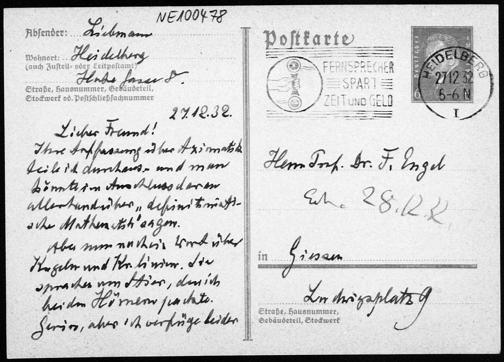 NE100478
Absender: Liebmann
Wohnort: Heidelberg
(auch Zustell- oder Leitpostamt)
Straße, Hausnummer, Gebäudeteil,
Stockwerk od. Postschließfachnummer
27.12.32.
Lieber Freund!
Ihre Auffassung über Axiomatik
teile ich durchaus und man
könnte im Anschluss daran
allerhand über
sche Mathematik" sagen.
Aber nun noch ein Wort über
Kugeln und Kr. linien. Sie
sprachen vom Stier, den ich
bei den Hörnern packte.
Gewiss, aber ich verfüge leider
Postkarte
FERNSPRECHER
SPART
ZEIT UND GELD
HEIDELBERG
27.12.32
5-6 N
I
6
Herrn Prof. Dr. F. Engel
28.12.32.
in Giessen
Ludwigsplatz 9
Straße, Hausnummer,
Gebäudeteil, Stockwerk